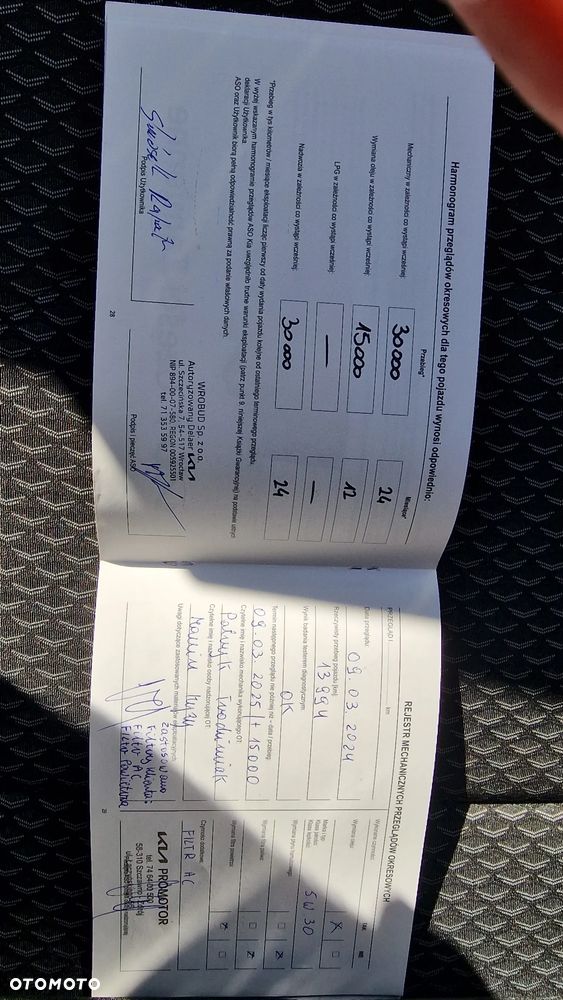 Harmonogram przeglądów okresowych dla tego pojazdu wynosi odpowiednio:
Przebieg* Miesiące*
Mechaniczny w zależności co wystąpi wcześniej: 30 000 24
Wymiana oleju w zależności co wystąpi wcześniej: 15000 12
LPG w zależności co wystąpi wcześniej: — —
Nadwozia w zależności co wystąpi wcześniej: 30 000 24
*Przebieg w tys kilometrów / miesiące eksploatacji licząc pierwszy od daty wydania pojazdu kolejne od ostatniego terminowego przeglądu.
W wyżej wskazanym harmonogramie przeglądów ASO Kia uwzględniło trudne warunki eksploatacji (patrz punkt 9. niniejszej Książki Gwarancyjnej) na podstawie ustnych
deklaracji Użytkownika.
ASO oraz Użytkownik biorą pełną odpowiedzialność prawną za podanie właściwych danych.
WROBUD Sp. z o.o.
Autoryzowany Dealer KIA
ul. Szczecińska 7, 54-517 Wrocław
tel. 71 353 59 97
Podpis Użytkownika
Podpis i pieczęć ASO
28
REJESTR MECHANICZNYCH PRZEGLĄDÓW OKRESOWYCH
PRZEGLĄD I km
Data przeglądu:
09.03.2024
Rzeczywisty przebieg pojazdu (km):
13994
Wynik badania testerem diagnostycznym:
OK
Termin następnego przeglądu nie później niż - data / przebieg:
09.03.2025 / + 15000
Czytelne imię i nazwisko mechanika wykonującego OT:
Czytelne imię i nazwisko osoby nadzorującej OT:
Marcin
Uwagi dotyczące zastosowanych materiałów eksploatacyjnych:
Zastosowano
Filtr AC
Filtr Powietrza
Wykonane czynności: TAK NIE
Wymiana oleju: X
Marka / typ:
Klasa jakości:
Klasa lepkości:
5W30
Wymiana płynu hamulcowego:
Wymiana filtra paliwa:
Wymiana filtra powietrza:
Czynności dodatkowe:
FILTR AC
KIA PROMOTOR
tel. 74 6400 550
29
OTOMOTO